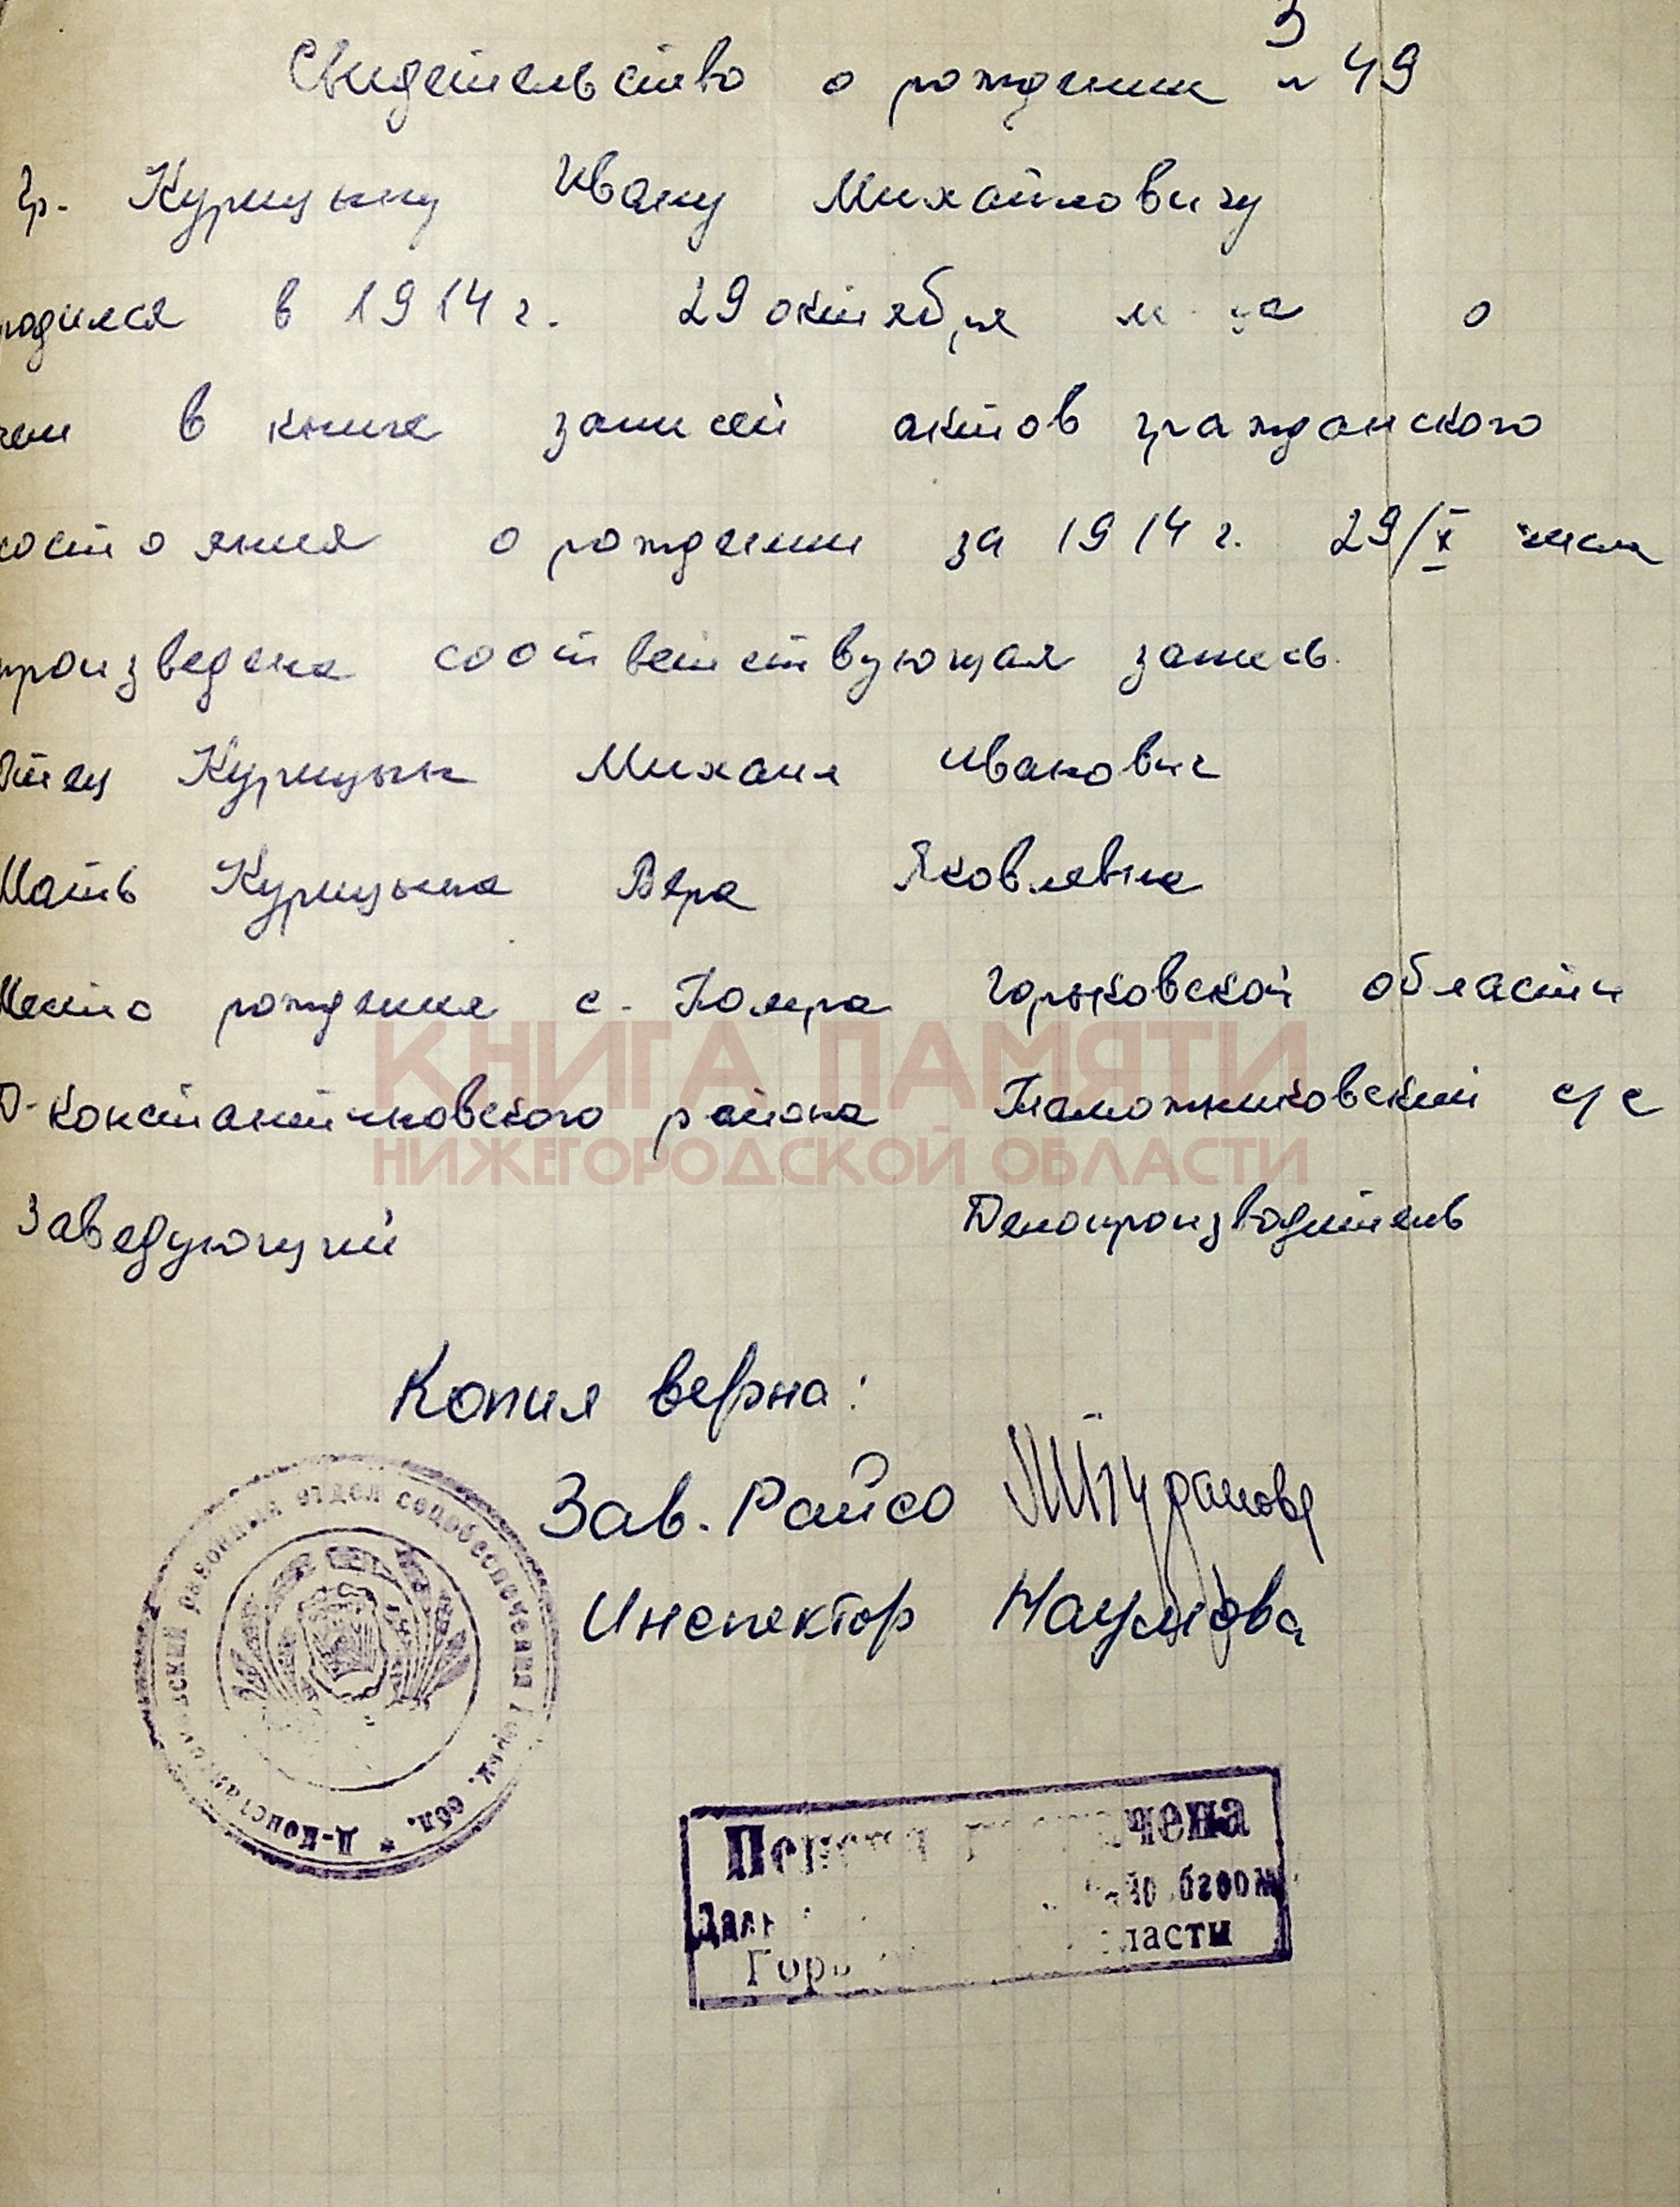 3
Свидетельство о рождении № 49
Гр. Курицыну Ивану Михайловичу
родился в 1914 г. 29 октября м-ца о
чем в книге записей актов гражданского
состояния о рождении за 1914 г. 29/X числа
произведена соответствующая запись.
Отец Курицын Михаил Иванович
Мать Курицына Вера Яковлевна
Место рождения с. Помра Горьковской области
Д-Константиновского района Таможниковский с/с
КНИГА ПАМЯТИ
НИЖЕГОРОДСКОЙ ОБЛАСТИ
Заведующий Делопроизводитель
Копия верна:
Зав. Райсо
Инспектор Наумова
Д-Константиновский районный отдел соцобеспечения Горьк. обл. *
Пенсия назначена
ласти